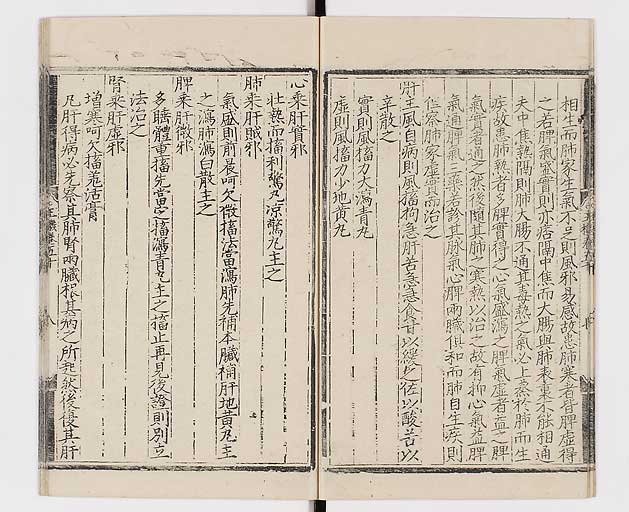 相生而肺家生氣不足則風邪易感故患肺寒者皆脾虛得
之若脾氣塞實則亦痞隔中焦而大腸與肺表裏不能相通
夫中焦熱隔則肺大腸不通其毒熱之氣必上蒸於肺而生
疾故患肺熱者多脾實得之心氣盛瀉之脾氣虛者益之脾
氣實者通之然後隨其肺之寒熱以治之故有抑心氣益脾
氣通脾氣三藥若診其脉氣心脾兩臟俱和而肺自生疾則
但察肺家虛實而治之
肝主風自病則風搐拘急肝苦急急食甘以緩之佐以酸苦以
辛散之
實則風搐力大瀉青丸
虛則風搐力少地黃丸
心乘肝實邪
壯熱而搐利驚丸涼驚丸主之
肺乘肝賊邪
氣盛則前晨呵欠微搐法當瀉肺先補本臟補肝地黃丸主
之瀉肺瀉白散主之
脾乘肝微邪
多睡體重搐先當定搐瀉青丸主之搐止再見後證則別立
法治之
腎乘肝虛邪
增寒呵欠搐羗活膏
凡肝得病必先察其肺腎兩臟根其病之所起然後復其肝